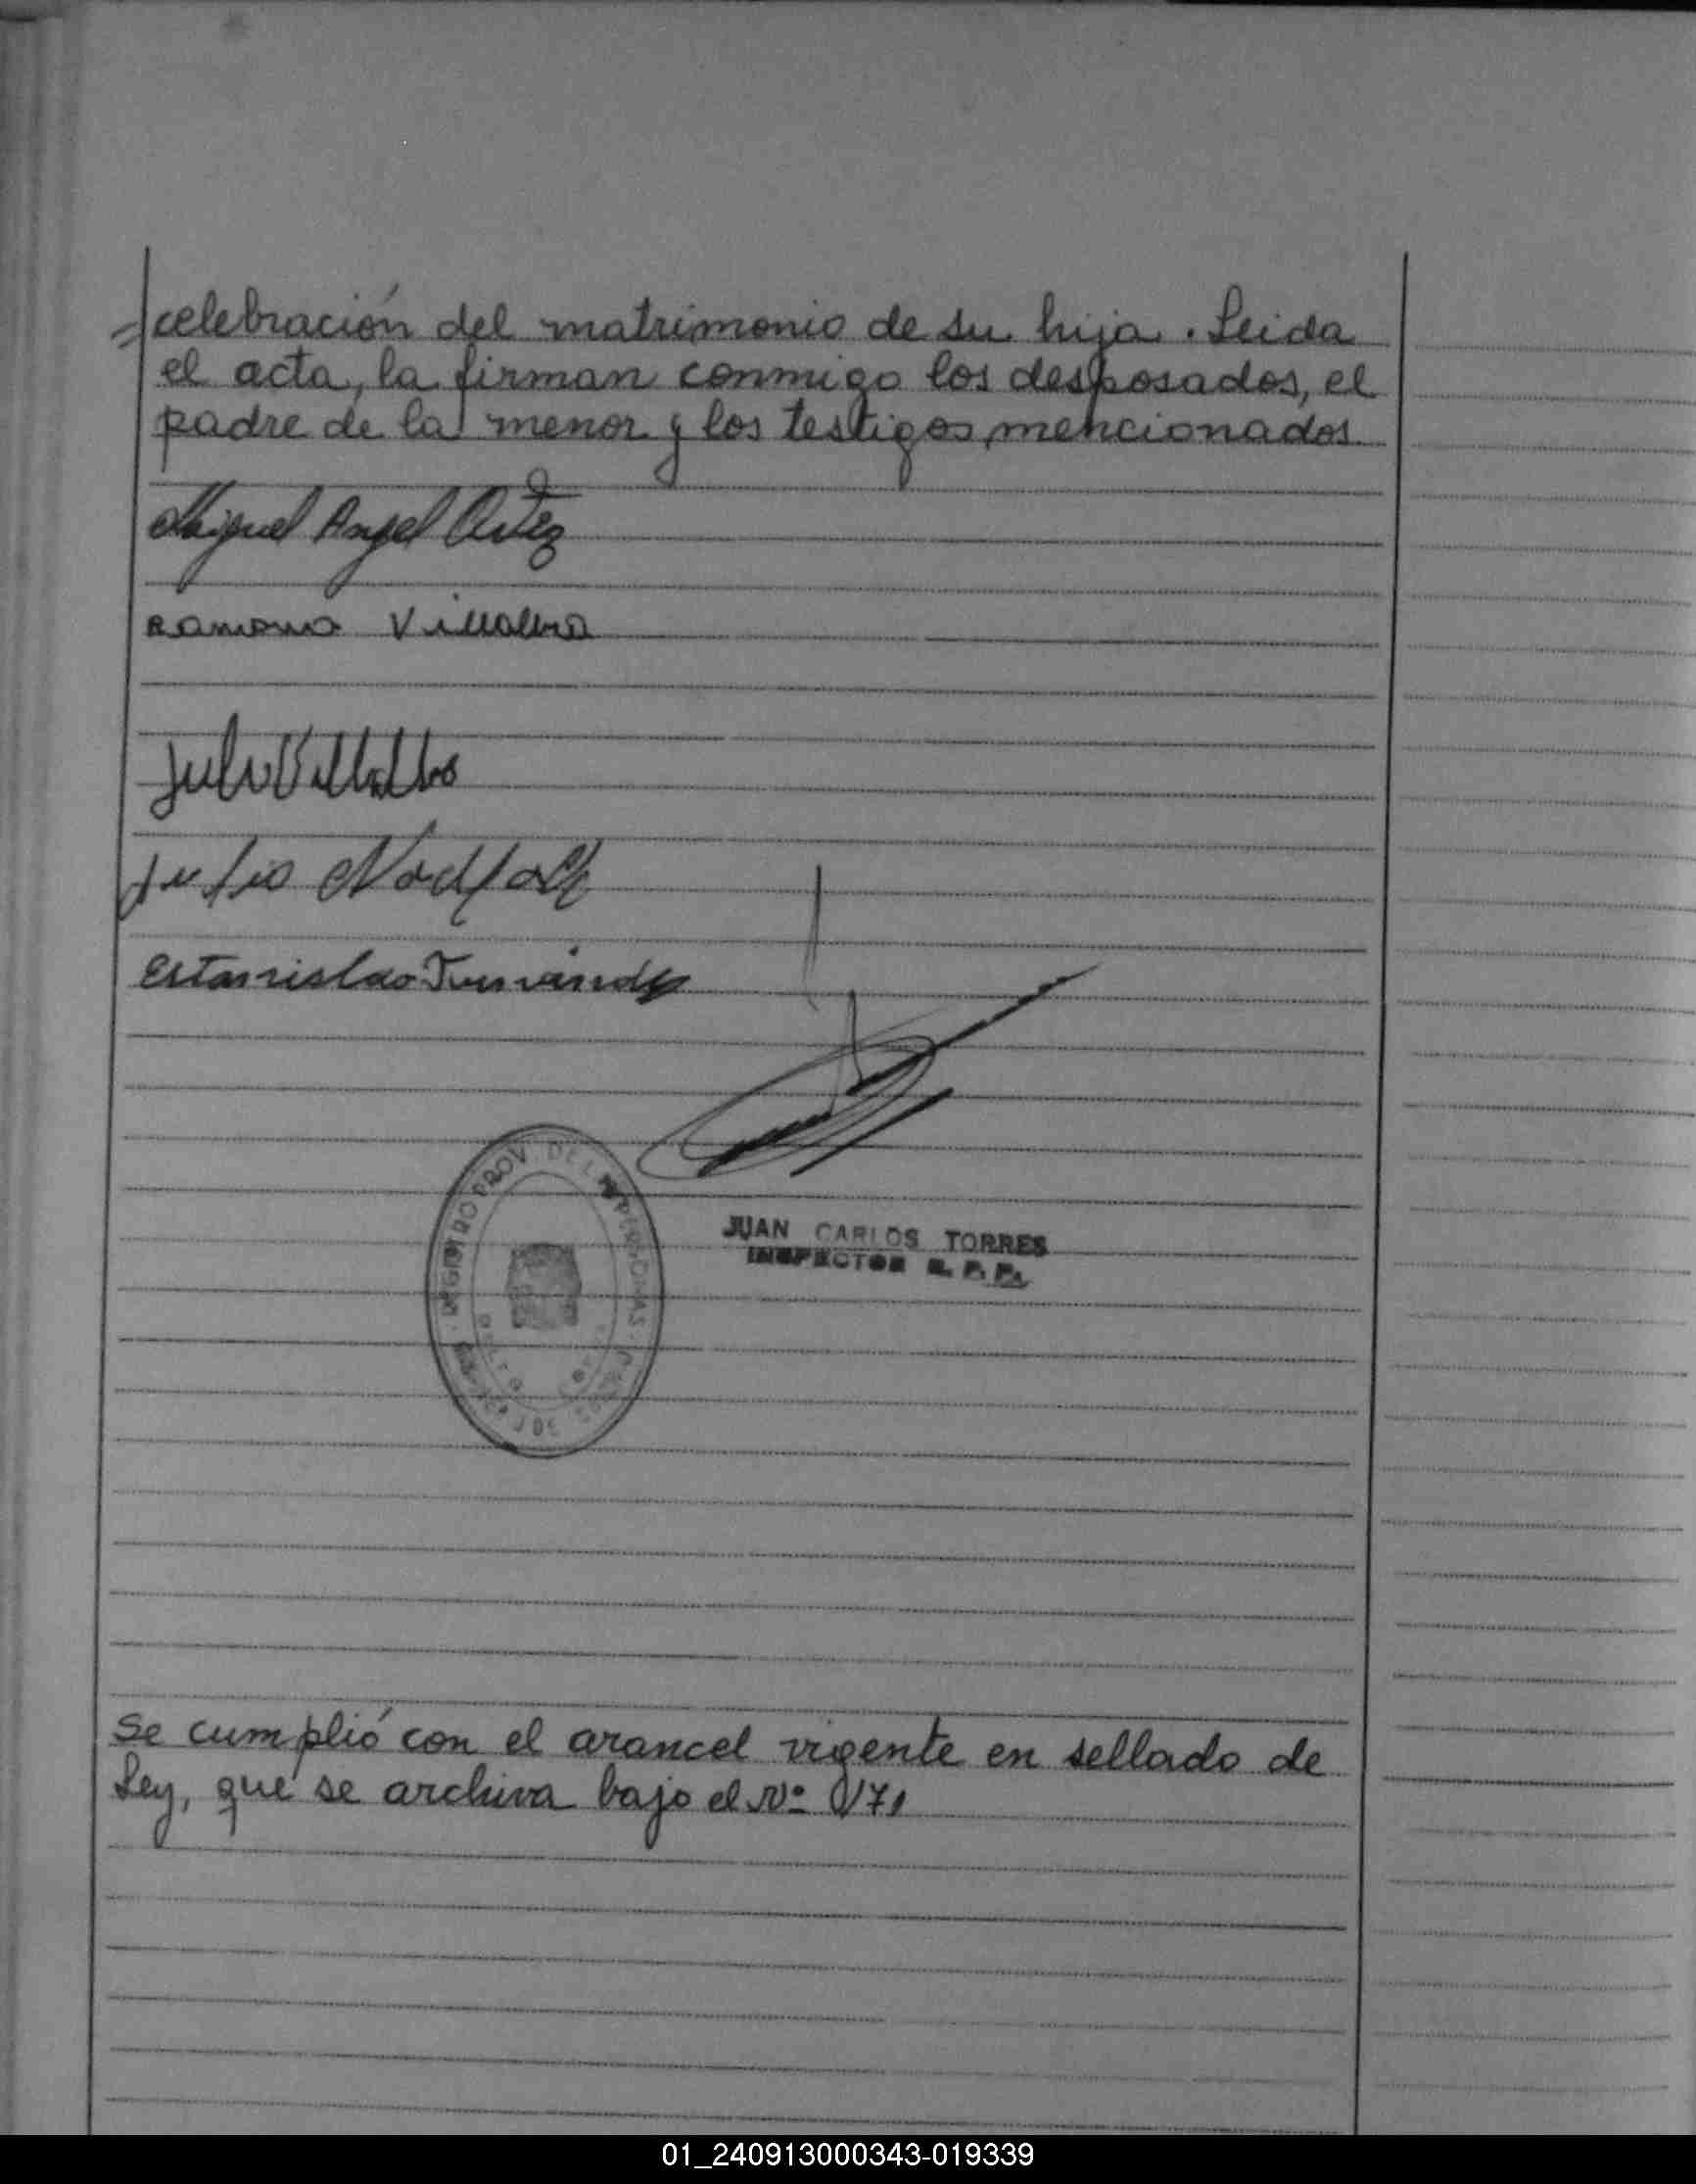 =celebración del matrimonio de su hija. Leida
el acta, la firman conmigo los desposados, el
padre de la menor y los testigos mencionados.
Miguel Angel
Ramona Villalba
Julio Villalba
Julio
Estanislao
REGISTRO PROV. DE LAS PERSONAS
JUAN CARLOS TORRES
INSPECTOR R. P. P.
Se cumplió con el arancel vigente en sellado de
Ley, que se archiva bajo el Nº
01_240913000343-019339